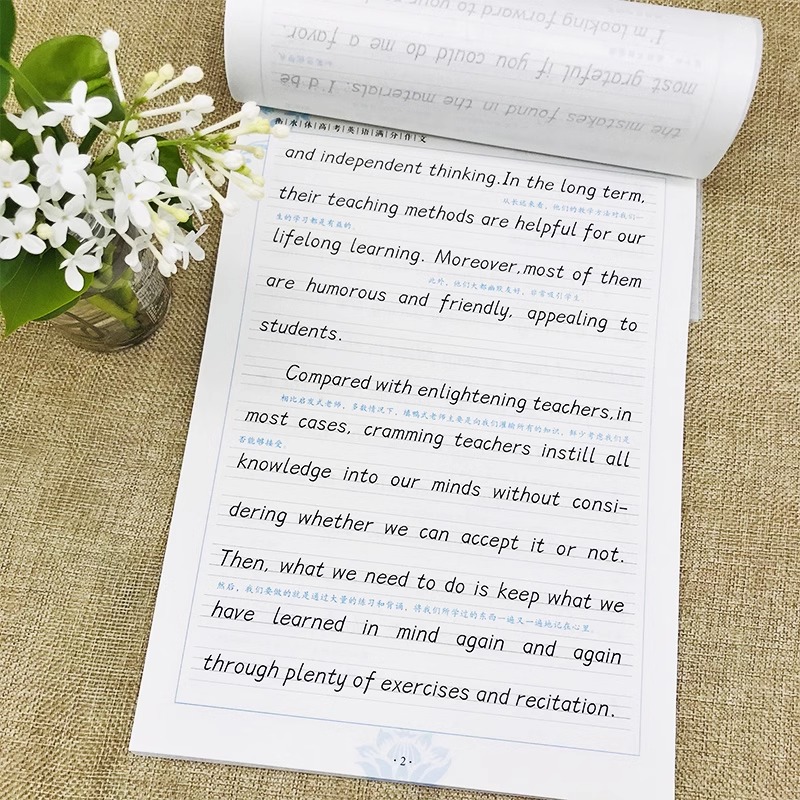 I'm looking forward to your
most grateful if you could do me a favor.
the mistakes found in the materials. I'd be
衡|水|体|高|考|英|语|满|分|作|文
and independent thinking.In the long term,
从长远来看，他们的教学方法对我们一
their teaching methods are helpful for our
生的学习都是有益的。
lifelong learning. Moreover,most of them
此外，他们大都幽默友好，非常吸引学生。
are humorous and friendly, appealing to
students.
Compared with enlightening teachers,in
相比启发式老师，多数情况下，填鸭式老师主要是向我们灌输所有的知识，鲜少考虑我们是
most cases, cramming teachers instill all
否能够接受。
knowledge into our minds without consi-
dering whether we can accept it or not.
Then, what we need to do is keep what we
然后，我们要做的就是通过大量的练习和背诵，将我们所学过的东西一遍又一遍地记在心里。
have learned in mind again and again
through plenty of exercises and recitation.
·2·